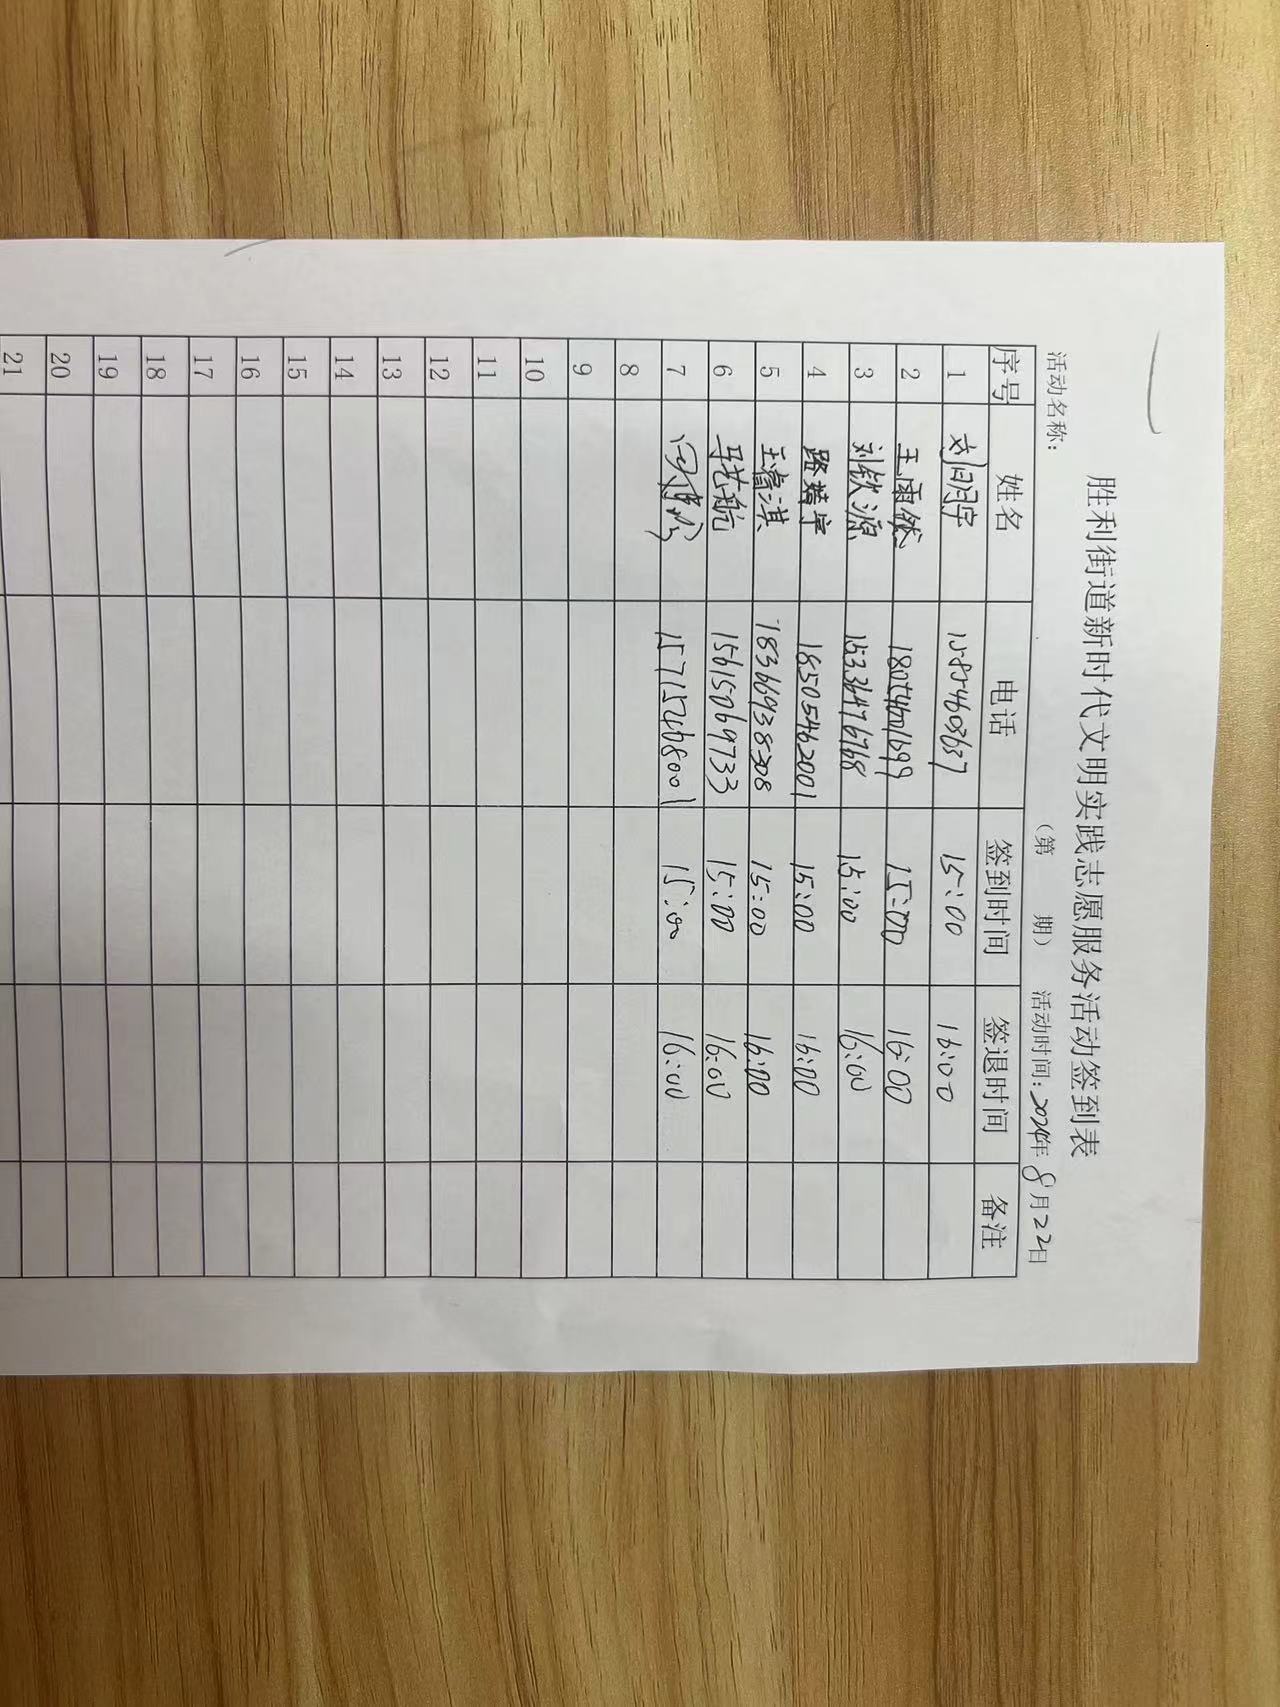 胜利街道新时代文明实践志愿服务活动签到表
（第 期）
活动名称： 活动时间：2024年8月22日
序号 姓名 电话 签到时间 签退时间 备注
1 15854603637 15:00 16:00
2 王雨然 18054601699 15:00 16:00
3 刘钦源 15336476768 15:00 16:00
4 路婧宇 18505462001 15:00 16:00
5 王睿淇 18366938308 15:00 16:00
6 马艺航 15615069733 15:00 16:00
7 15715468001 15:00 16:00
8
9
10
11
12
13
14
15
16
17
18
19
20
21